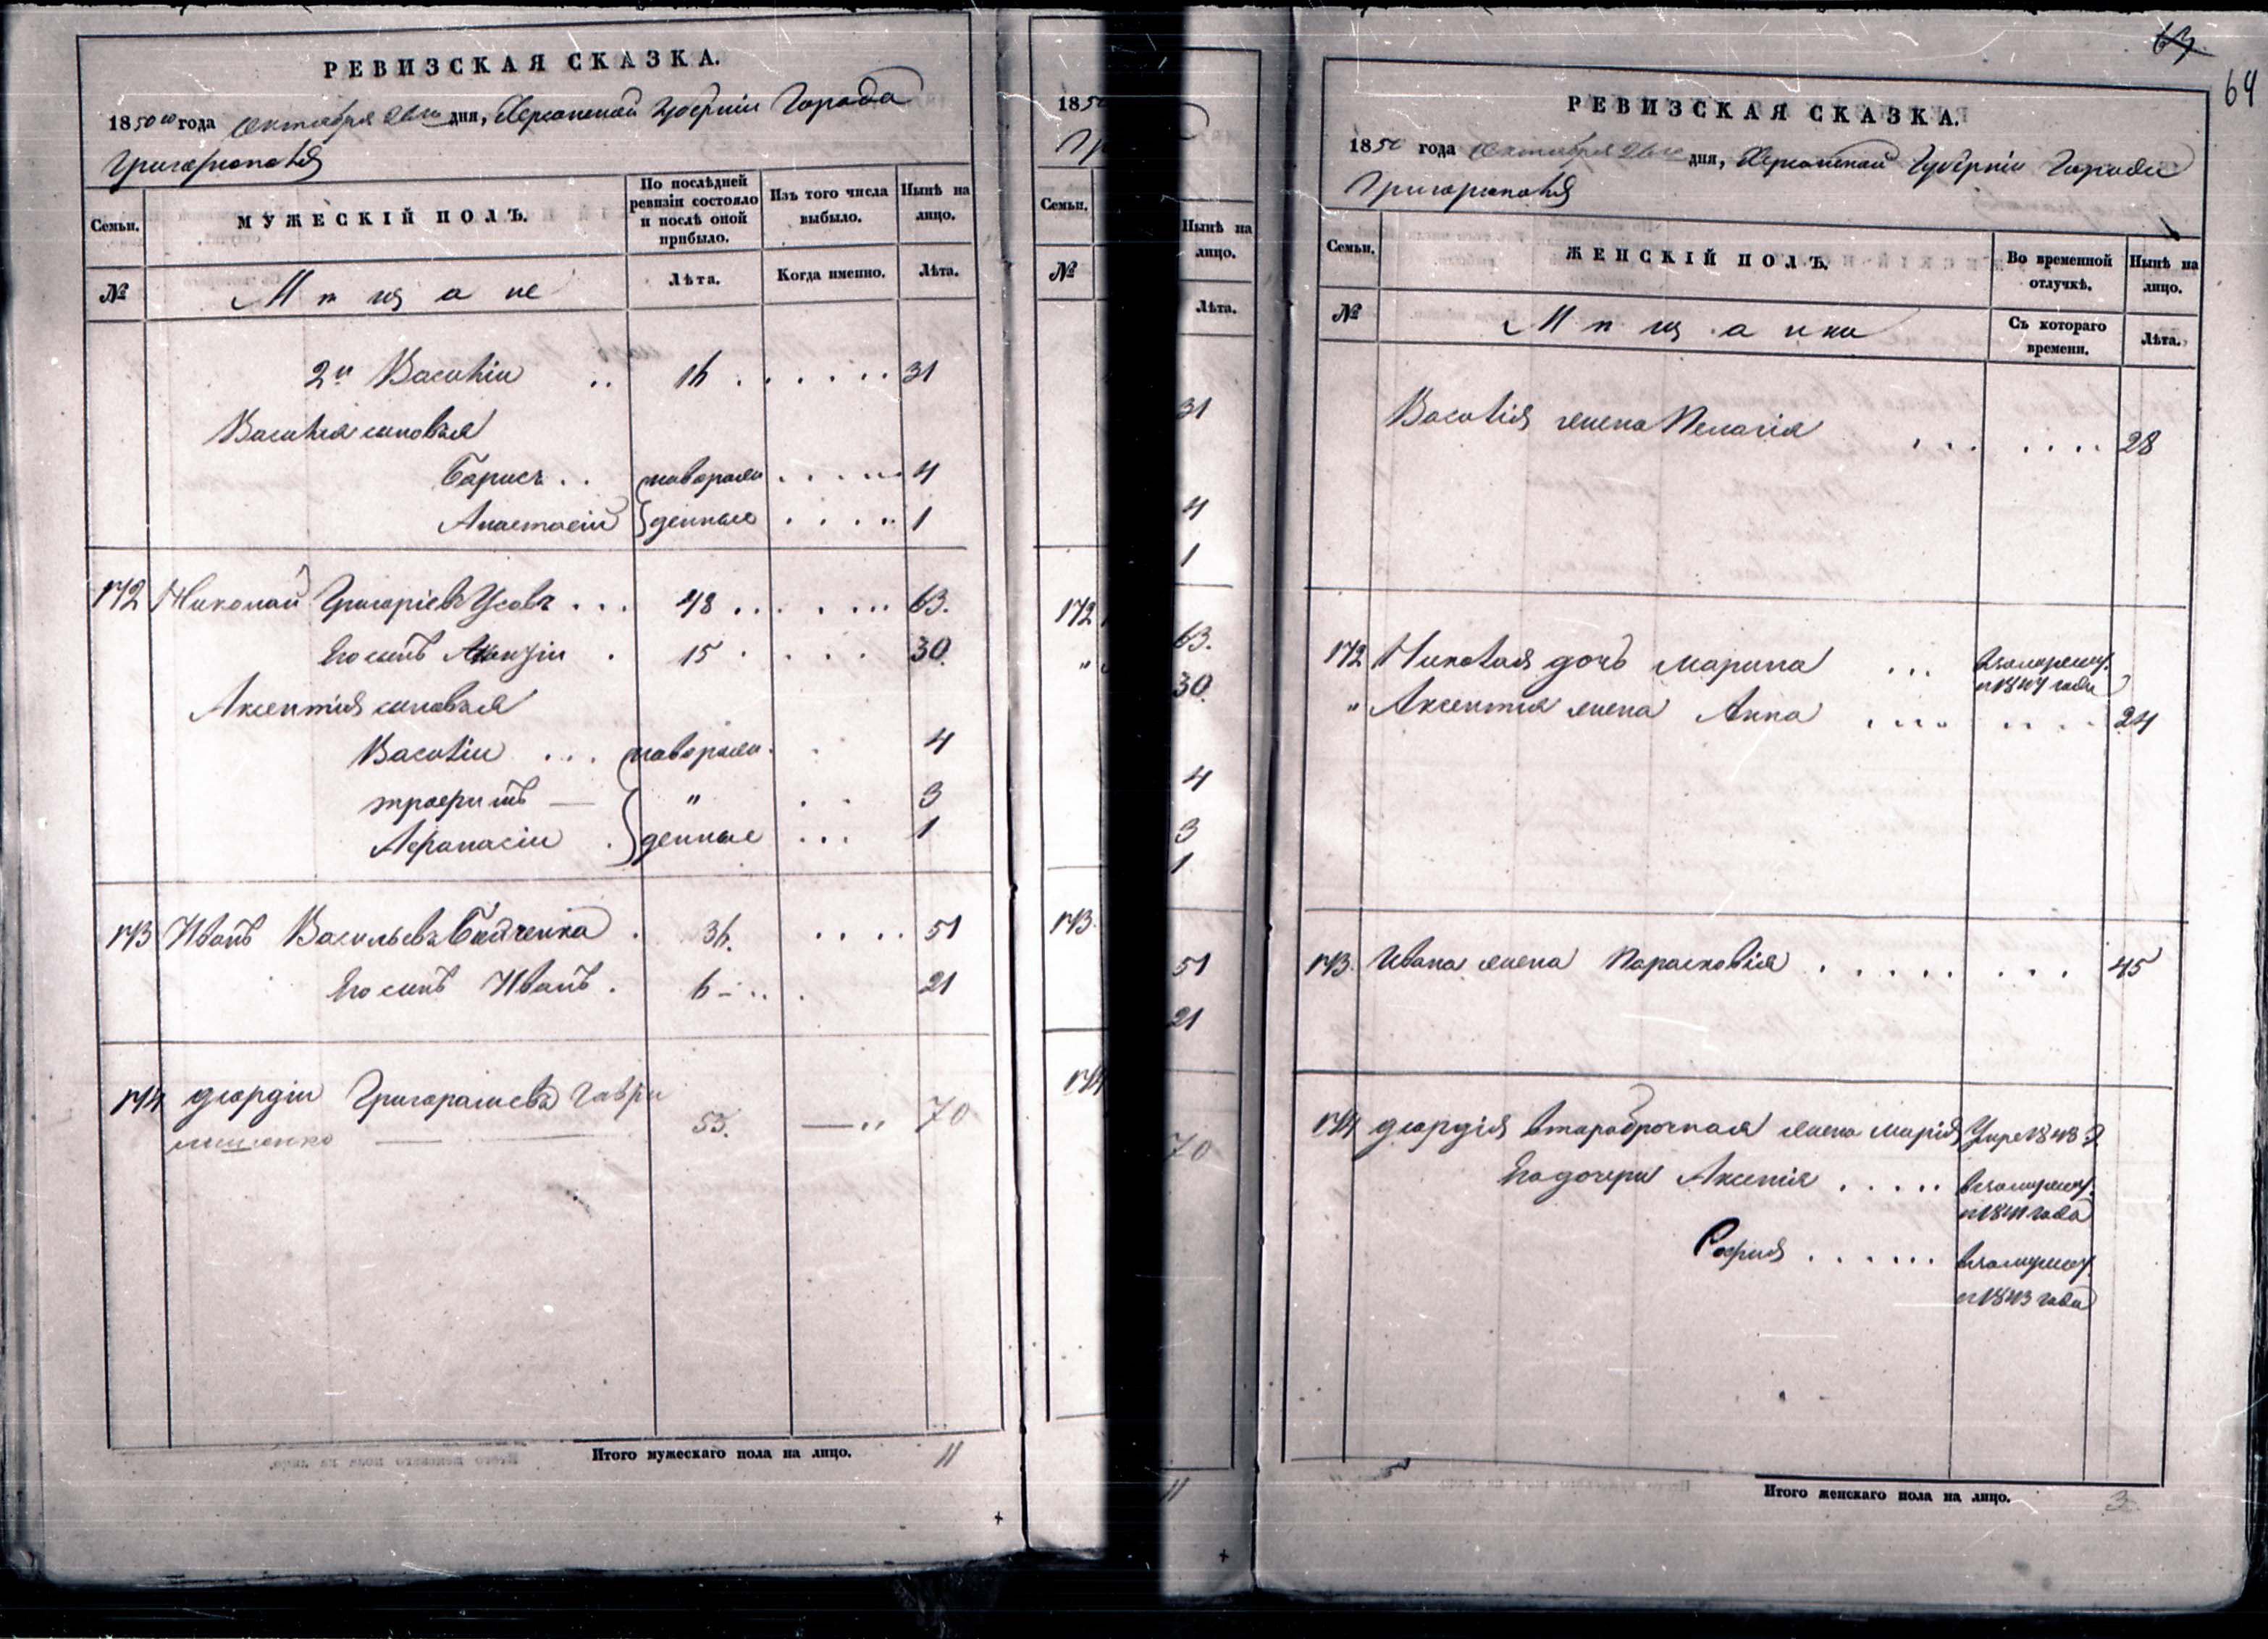 РЕВИЗСКАЯ СКАЗКА.
1850го года Октября 26го дня, Херсонской Губерніи Города
Григоріополя
Семьи.
МУЖЕСКІЙ ПОЛЪ.
По послѣдней ревизіи состояло и послѣ оной прибыло.
Изъ того числа выбыло.
Нынѣ на лицо.
№
Мѣщане
Лѣта.
Когда именно.
Лѣта.
2й Василій .. 16 . . . . . . 31
Василія сыновья
Борисъ . . новорож . . . . . . 4
Анастасій денные . . . . . 1
172 Николай Григоріевъ Усовъ . . . 48 . . . . . . . 63.
Его сынъ . 15 . . . . 30.
Аксентія сыновья
Василій . . . новорож . . 4
трофимъ — " . . 3
Афанасій . денные . . . 1
173 Иванъ Васильевъ . 36. . . . . 51
Его сынъ Иванъ . 6 – . . . 21
174 Георгій Григорашевъ Гаври
55. — „ 70
Итого мужескаго пола на лицо. 11
185
Семьи.
№
172
"
173.
174
Нынѣ на лицо.
Лѣта.
31
4
1
63.
30.
4
3
1
51
21
70
11
63.
64
РЕВИЗСКАЯ СКАЗКА.
1850 года Октября 26го дня, Херсонской Губерніи Города
Григоріополя
Семьи.
ЖЕНСКІЙ ПОЛЪ.
Во временной отлучкѣ.
Нынѣ на лицо.
№
Мѣщанки
Съ котораго времени.
Лѣта.
Василія жена Пелагія . . . . . . . 28
172 Николая дочь Марина . . . взамужест.
съ 1847 года
" Аксентія жена Анна . . . . . . . . 24
173. Ивана жена Парасковія . . . . . . . . 45
174 Георгія втаробрачная жена Марія Умре 1848 г.
Его дочери Аксенія . . . . . взамужест.
съ 1841 года
София . . . . . . взамужест.
съ 1843 года
Итого женскаго пола на лицо. 3.